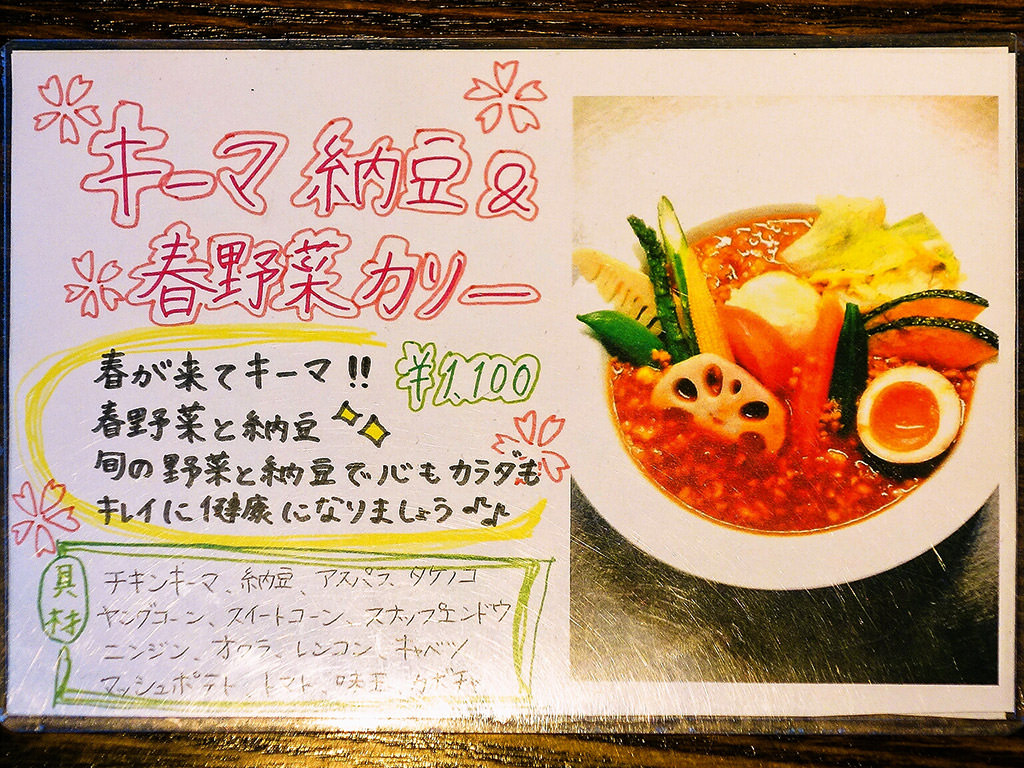 キーマ 納豆 &
春野菜カリー
春が来てキーマ!!
¥1,100
春野菜と納豆
旬の野菜と納豆で心もカラダも
キレイに健康になりましょう♪♪
具材
チキンキーマ、納豆、アスパラ、タケノコ
ヤングコーン、スイートコーン、スナップエンドウ
ニンジン、オクラ、レンコン、キャベツ
マッシュポテト、トマト、味玉、カボチャ